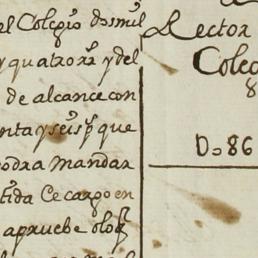 el Colegio dosmil
y quatro rs y del
de alcance con
nta y seis ps que
podra mandar
tida Ce cargo en
apruebe
Rector
Coleg
8
Do 86